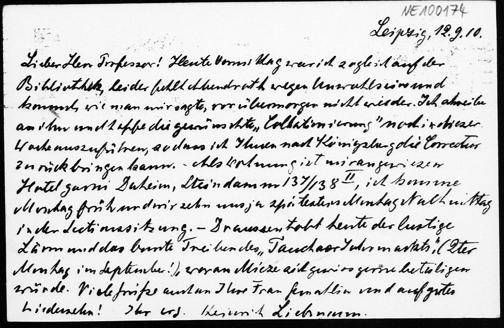 NE100174
Leipzig, 12.9.10.
Lieber Herr Professor! Heute Vormittag war ich sogleich auf der
Bibliothek, leider fehlt wegen Unwohlseins und
kommt, wie man mir sagte, vor übermorgen nicht wieder. Ich schreibe
an ihn und hoffe die gewünschte „Collationierung" noch in dieser
Woche auszuführen, so dass ich Ihnen nach Königsberg die Correctur
zurückbringen kann. – Als Wohnung ist mir angewiesen
Hotel garni Daheim, Steindamm 137/138 II, ich komme
Montag früh und wir sehn uns ja spätestens Montag Nachmittag
in der Sectionssitzung. – Draussen tobt heute der lustige
Lärm und das bunte Treiben des „Tauchaer Jahrmarkts", (2ter
Montag im September!), woran Mieze sich gewiss gerne beteiligen
würde. Viele Grüsse auch an Ihre Frau Gemahlin und auf gutes
Wiedersehn! Ihr erg. Heinrich Liebmann.